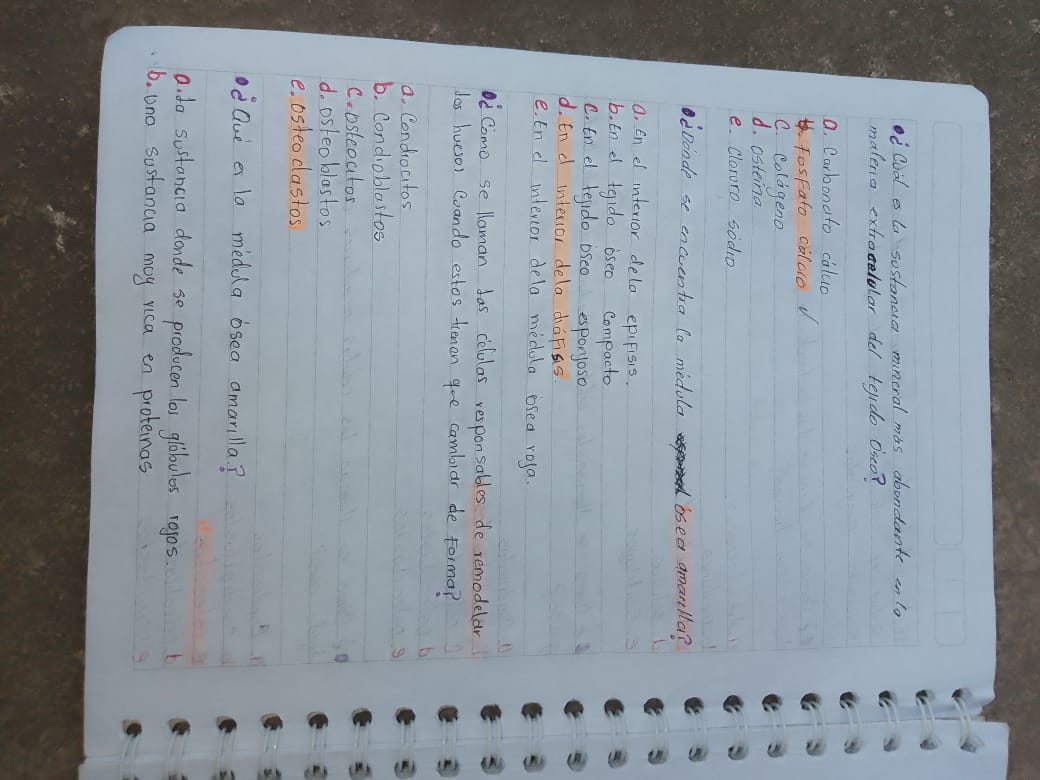 •¿Cuál es la sustancia mineral más abundante en la
materia extracelular del tejido óseo?
a. Carbonato cálcio
b. Fosfato cálcio ✓
c. Colágeno
d. osteína
e. Cloruro sódio
•¿Dónde se encuentra la médula ósea amarilla?
a. En el interior dela epífisis.
b. En el tejido óseo compacto
c. En el tejido óseo esponjoso
d. En el interior dela diáfisis.
e. En el interior dela médula ósea roja.
•¿Cómo se llaman las células responsables de remodelar
los huesos cuando estos tienen que cambiar de forma?
a. Condrocitos
b. Condioblastos
c. osteocitos
d. osteoblastos
e. osteoclastos
•¿Qué es la médula ósea amarilla?
a. la sustancia donde se producen los glóbulos rojos.
b. una sustancia muy rica en proteinas